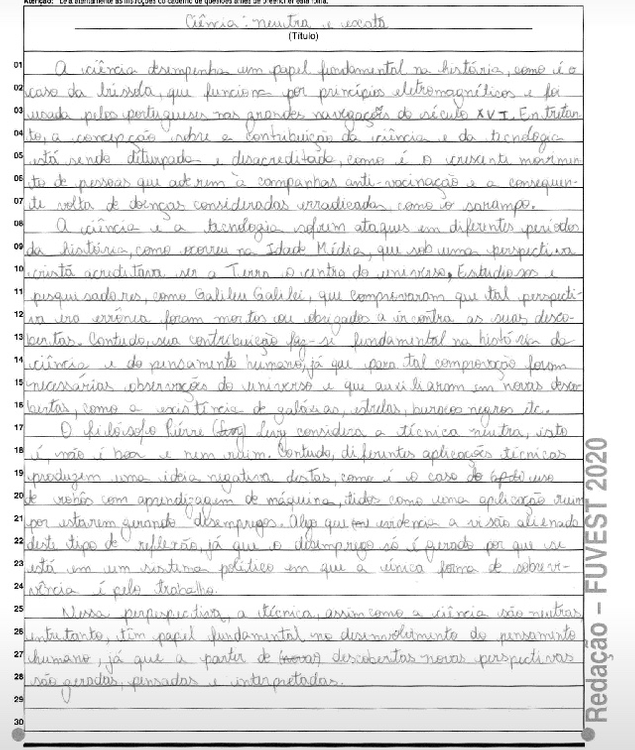 Atenção: Leia atentamente as instruções do caderno de questões antes de preencher esta folha.
Ciência: neutra e exata
(Título)
01 A ciência desempenha um papel fundamental na história, como é o
02 caso da bússola, que funciona por princípios eletromagnéticos e foi
03 usada pelos portugueses nas grandes navegações do século XVI. Entretan-
04 to, a concepção sobre a contribuição da ciência e da tecnologia
05 está sendo deturpada e desacreditada, como é o crescente movimen-
06 to de pessoas que aderem à campanhas anti-vacinação e a consequen-
07 te volta de doenças consideradas erradicadas, como o sarampo.
08 A ciência e a tecnologia sofrem ataques em diferentes períodos
09 da história, como ocorreu na Idade Média, que sob uma perspectiva
10 cristã acreditava ser a Terra o centro do universo, Estudiosos e
11 pesquisadores, como Galileu Galilei, que comprovaram que tal perspecti-
12 va era errônea foram mortos ou obrigados a ir contra as suas desco-
13 bertas. Contudo, sua contribuição faz-se fundamental na história da
14 ciência e do pensamento humano, já que para tal comprovação foram
15 necessárias observações do universo e que auxiliaram em novas desco-
16 bertas, como a existência de galáxias, estrelas, buracos negros etc.
17 O filósofo Pierre Levy considera a técnica neutra, isto
18 é, não é boa e nem ruim. Contudo, diferentes aplicações técnicas
19 produzem uma ideia negativa destas, como é o caso do uso
20 de robôs com aprendizagem de máquina, tidos como uma aplicação ruim
21 por estarem gerando desempregos. Algo que evidencia a visão alienada
22 deste tipo de reflexão, já que o desemprego só é gerado por que se
23 está em um sistema político em que a única forma de sobrevi-
24 vência é pelo trabalho.
25 Nessa perpespectiva, a técnica, assim como a ciência são neutras,
26 entretanto, têm papel fundamental no desenvolvimento do pensamento
27 humano, já que a partir de descobertas novas perspectivas
28 são geradas, pensadas e interpretadas.
29
30
Redação – FUVEST 2020